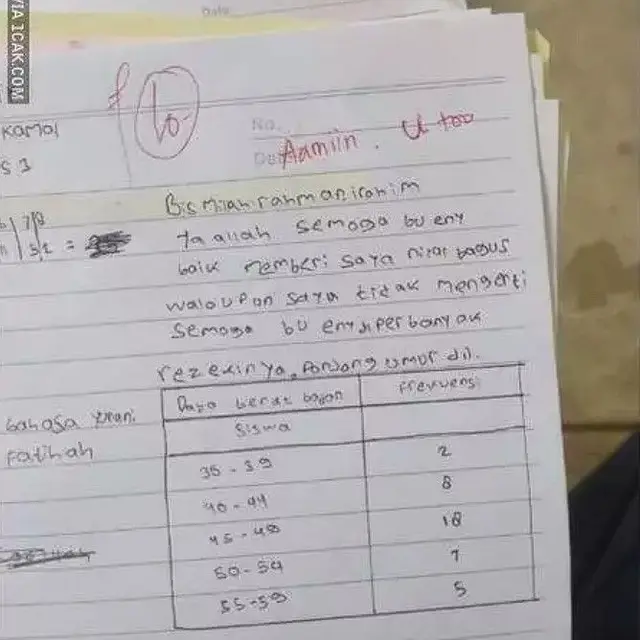 VIA 1CAK.COM
Date
No.
Aamiin. U too
Kamal
S 3
Bismilahrahmanirahim
Ya allah semoga bu eny
baik memberi saya nilai bagus
waloupan saya tidak mengerti
semoga bu eny diperbanyak
rezekinya, Panjang umur dll.
bahasa
Fatihah
Data berat badan
Frekuensi
Siswa
35 - 39
2
40 - 44
8
45 - 49
18
50 - 54
7
55 - 59
5